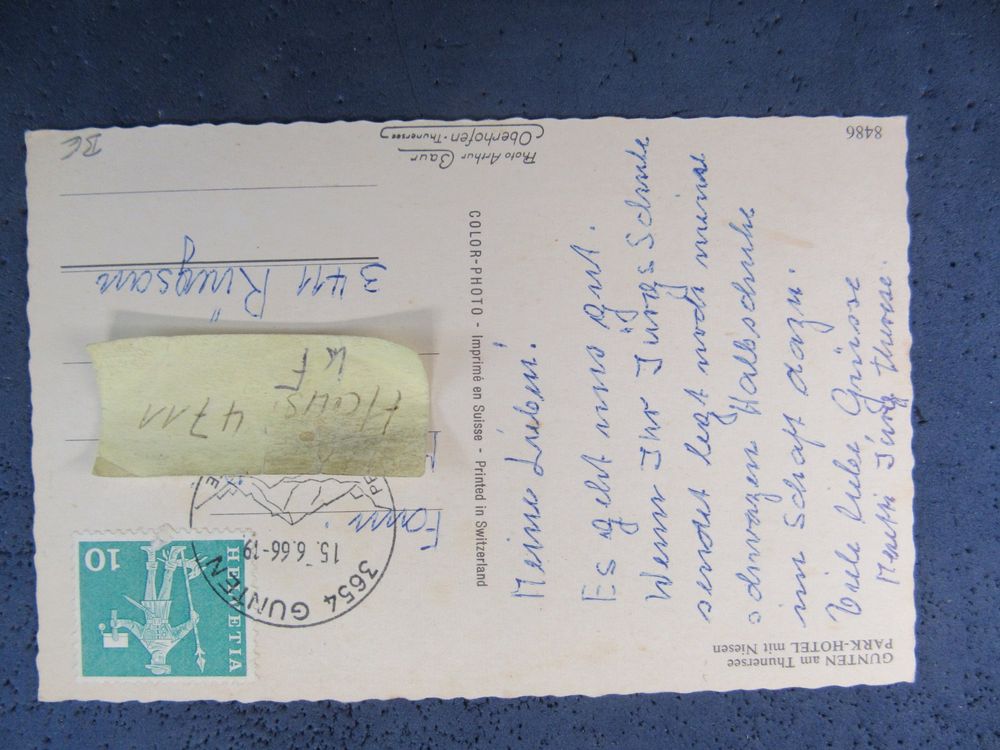 GUNTEN am Thunersee
PARK-HOTEL mit Niesen
Meine Lieben!
Es geht uns gut.
Wenn Ihr Jürgs Schuhe
sendet legt noch meine
schwarzen Halbschuhe
im Schaft dazu.
Viele liebe Grüsse
Jürg Therese.
COLOR-PHOTO - Imprimé en Suisse - Printed in Switzerland
Photo Arthur Baur
Oberhofen-Thunersee
8486
HELVETIA
10
3654 GUNTEN
15.6.66-19
Fam.
4711
3411 Rüegsau
BE